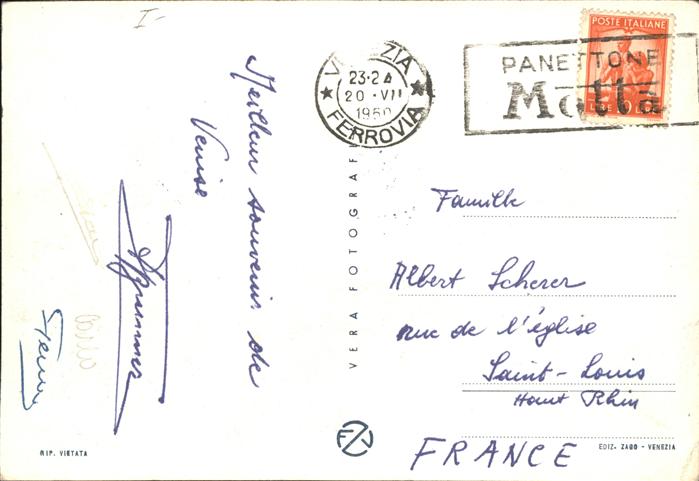 I-
Meilleur souvenir de
Venise
VENEZIA
23-24
20·VII
1950
FERROVIA
POSTE ITALIANE
PANETTONE
Motta
LIRE 10
VERA FOTOGRAFI
Famille
Albert Scherer
rue de l'église
Saint-Louis
Haut Rhin
FRANCE
RIP. VIETATA
EDIZ. ZAGO - VENEZIA